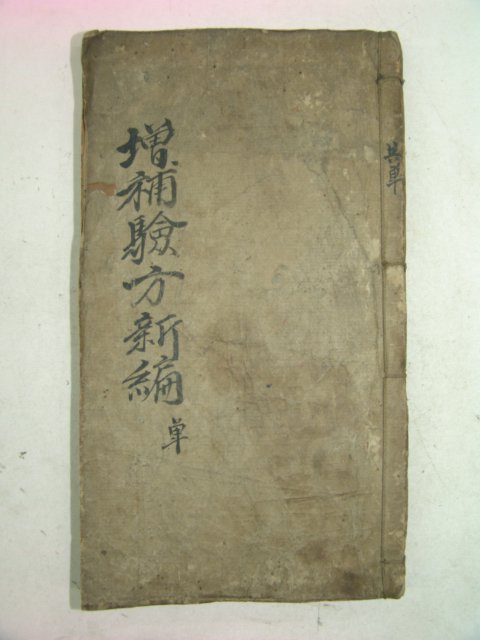 共單
增補驗方新編
单